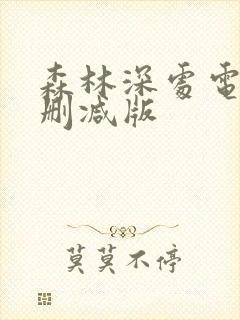 森林深處電
删减版
莫莫不停